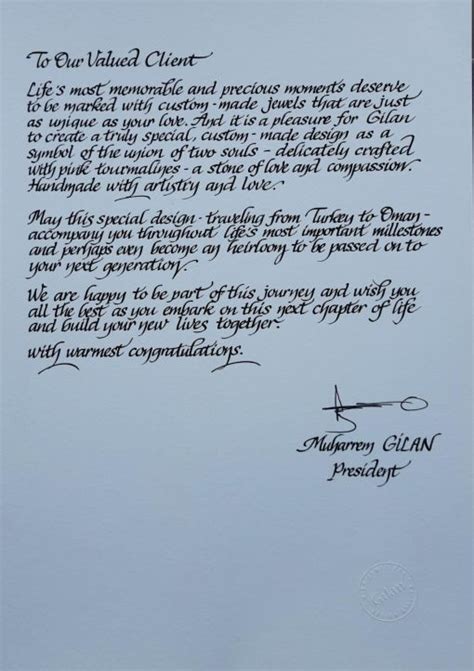 To Our Valued Client
Life's most memorable and precious moments deserve
to be marked with custom-made jewels that are just
as unique as your love. And it is a pleasure for Gilan
to create a truly special, custom-made design as a
symbol of the union of two souls - delicately crafted
with pink tourmalines - a stone of love and compassion.
Handmade with artistry and love.
May this special design - traveling from Turkey to Oman -
accompany you throughout life's most important millestones
and perhaps even become an heirloom to be passed on to
your next generation.
We are happy to be part of this journey and wish you
all the best as you embark on this next chapter of life
and build your new lives together.
with warmest congratulations.
Muharrem GİLAN
President
Gilan